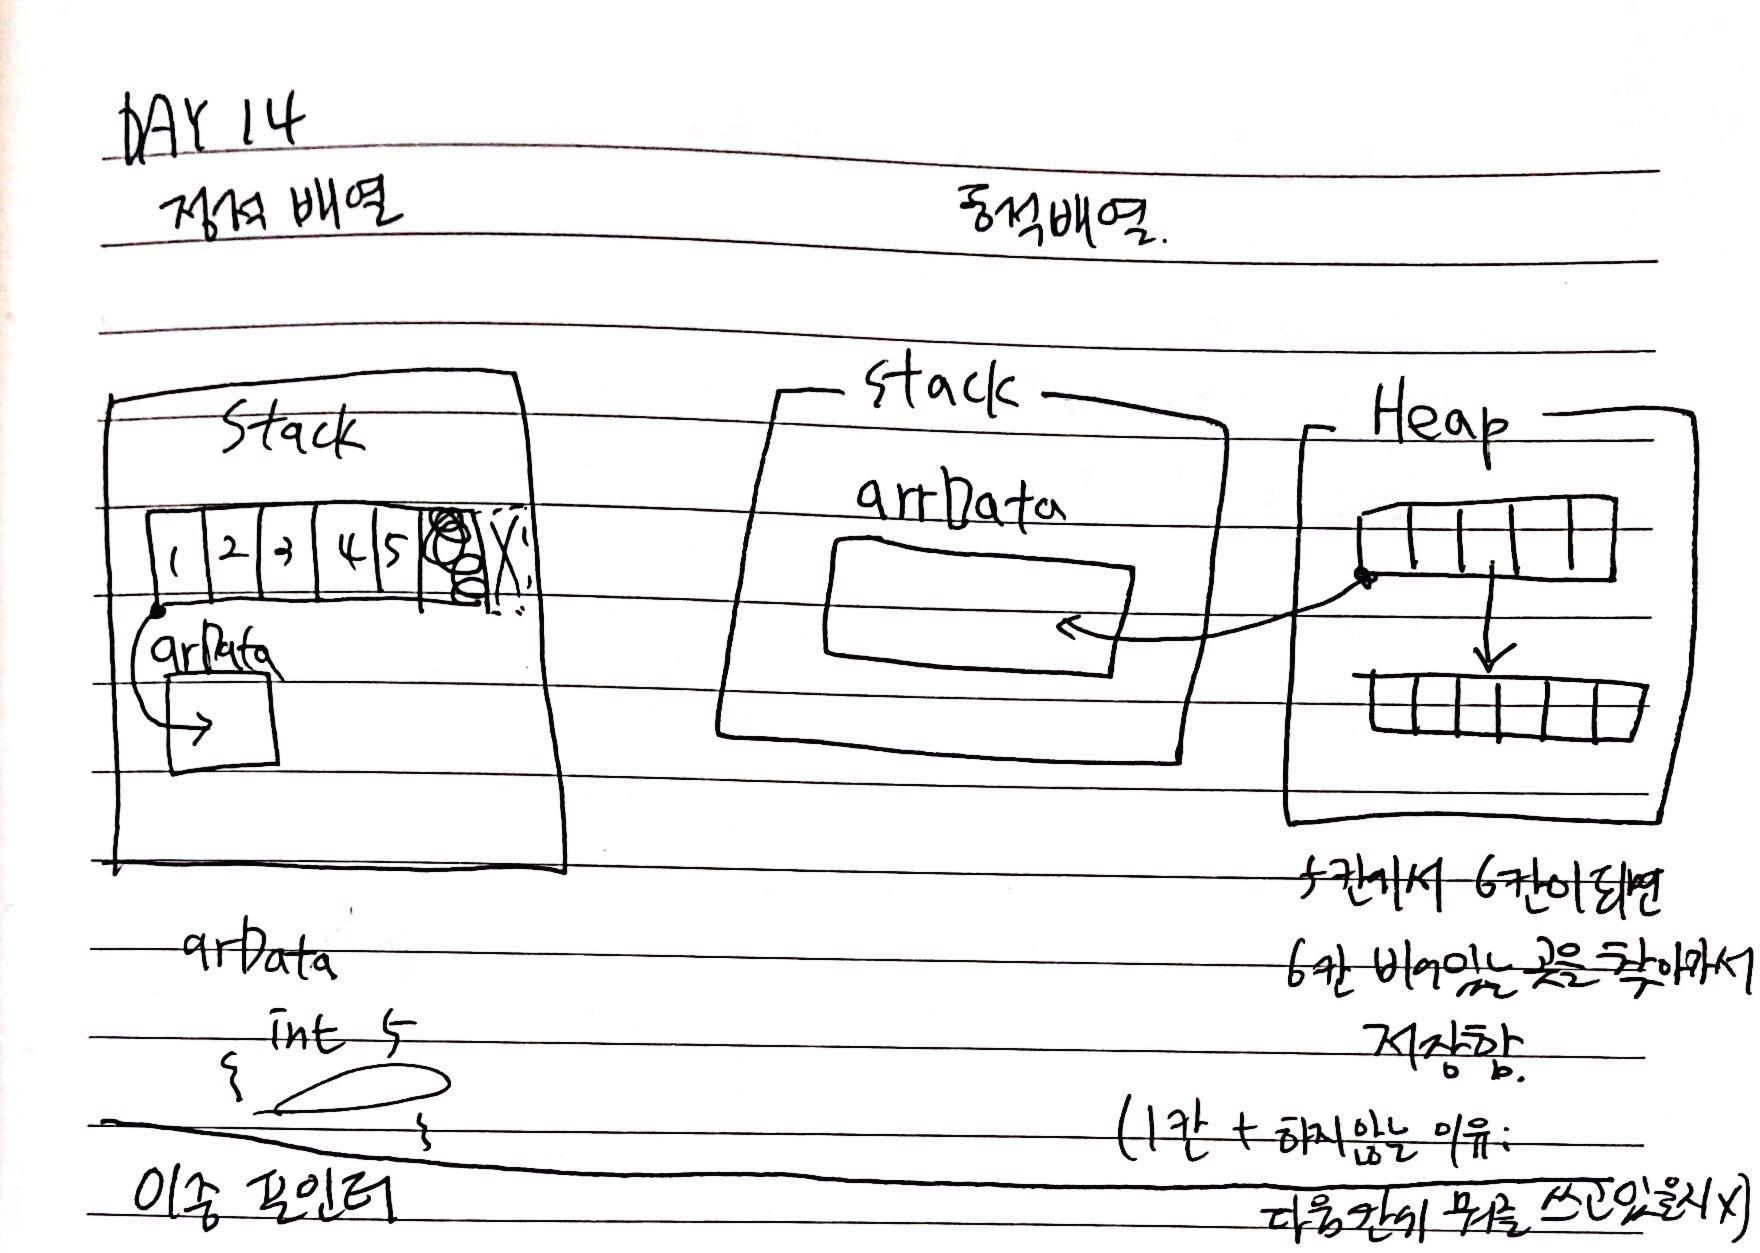 DAY 14
정적 배열
동적배열.
Stack
1 2 3 4 5 X
arData
arData
int 5
{
}
이중 포인터
Stack
arrData
Heap
5칸에서 6칸이 되면
6칸 비어있는 곳을 찾아가서
저장함.
(1칸 + 하지 않는 이유:
다음칸에 뭐를 쓰고있을지 X)